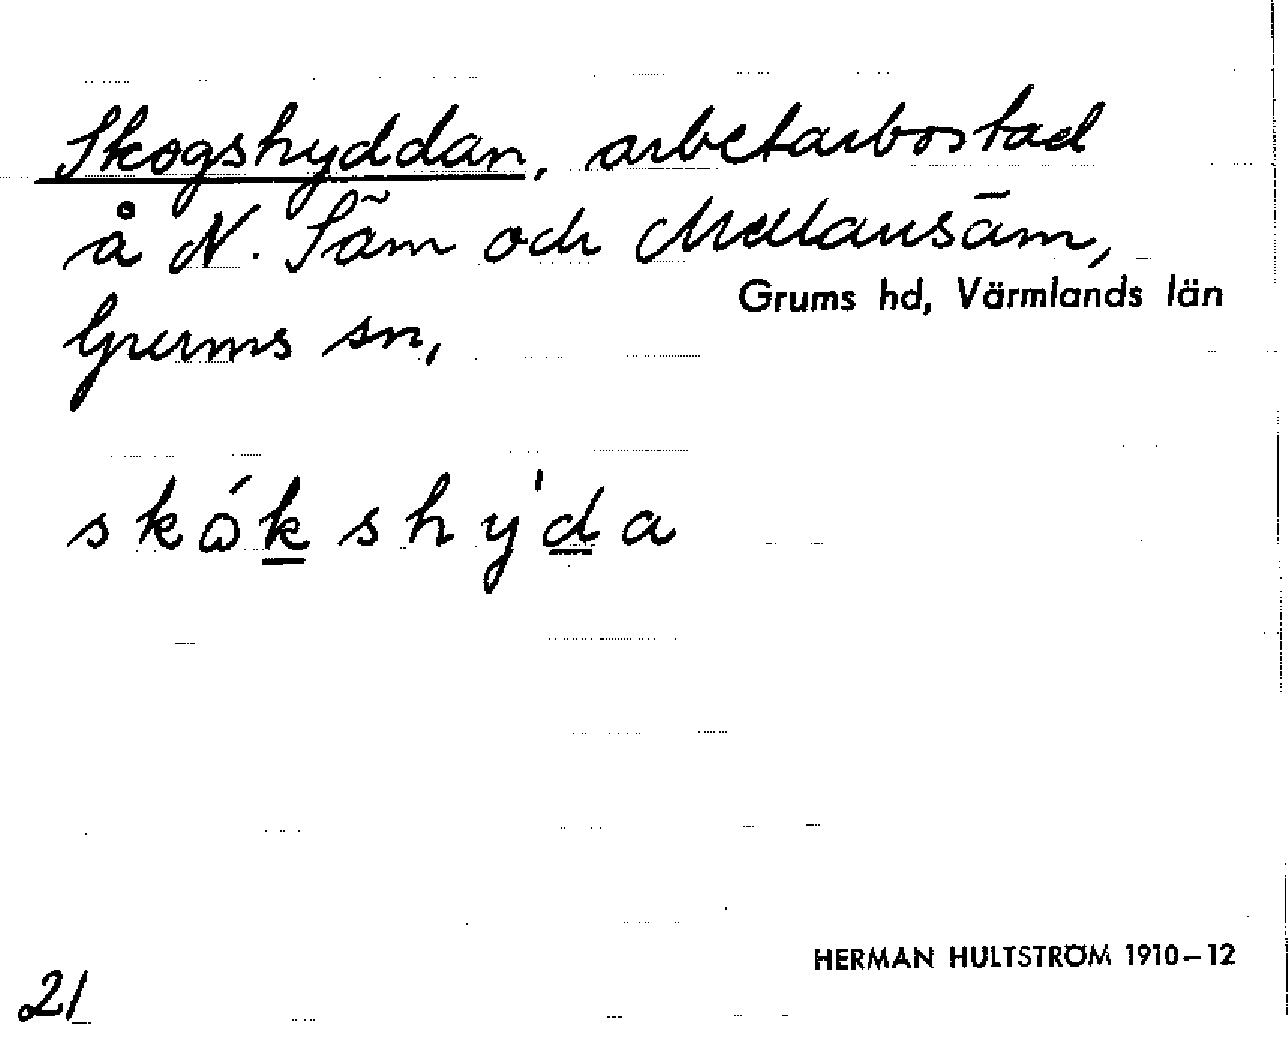 Skogshyddan, arbetarbostad
å N. Säm och Mellansäm,
Grums hd, Värmlands län
Grums sn,
skɷ́kshy̍da
21
HERMAN HULTSTRÖM 1910–12